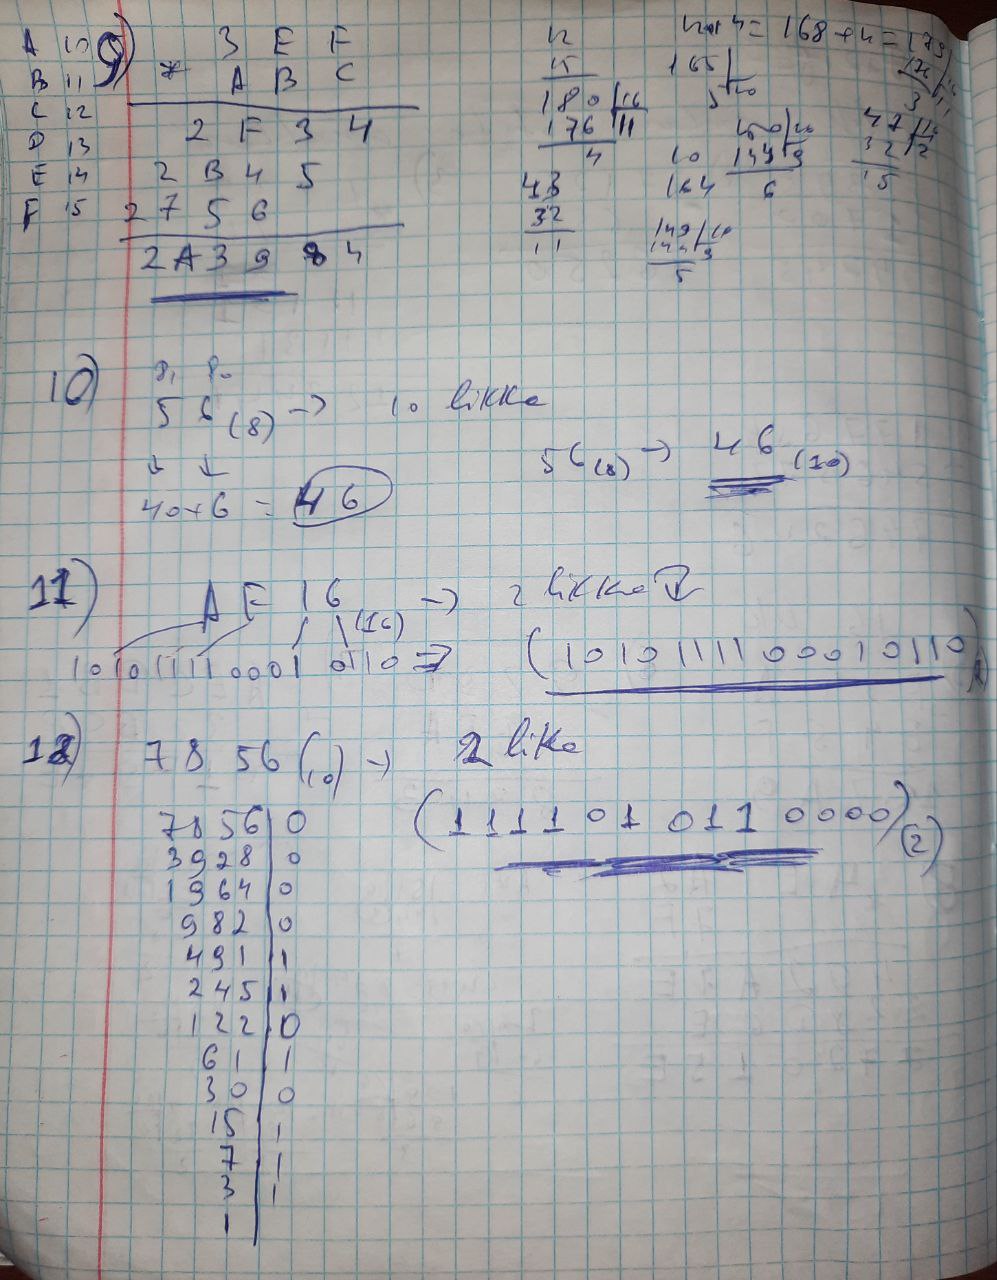 A 10
B 11
C 12
D 13
E 14
F 15
9)
3 E F
* A B C
2 F 3 4
2 B 4 5
2 7 5 6
2 A 3 9 8 4
12
15
180 | 16
176 | 11
4
43
32
11
165
10
164
150
144 | 9
6
149
144 | 9
5
47
32 | 2
15
10)
8₁ 8₀
5 6 (8) → 10 likke
↓ ↓
40+6 = 46
56(8) → 46 (10)
11)
A F 1 6 (16) → 2 likke
1010 1111 0001 0110 ⇒ (1010111100010110)
12)
7856(10) → 2 like
(1111010110000)(2)
7856 | 0
3928 | 0
1964 | 0
982 | 0
491 | 1
245 | 1
122 | 0
61 | 1
30 | 0
15 | 1
7 | 1
3 | 1
1